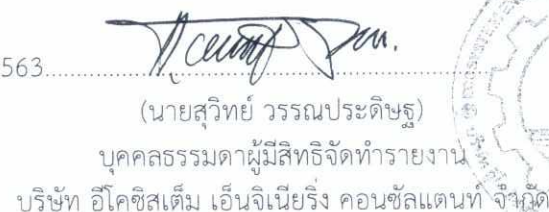 563........................................................
(นายสุวิทย์ วรรณประดิษฐ)
บุคคลธรรมดาผู้มีสิทธิจัดทำรายงาน
บริษัท อีโคซิสเต็ม เอ็นจิเนียริ่ง คอนซัลแตนท จำกัด